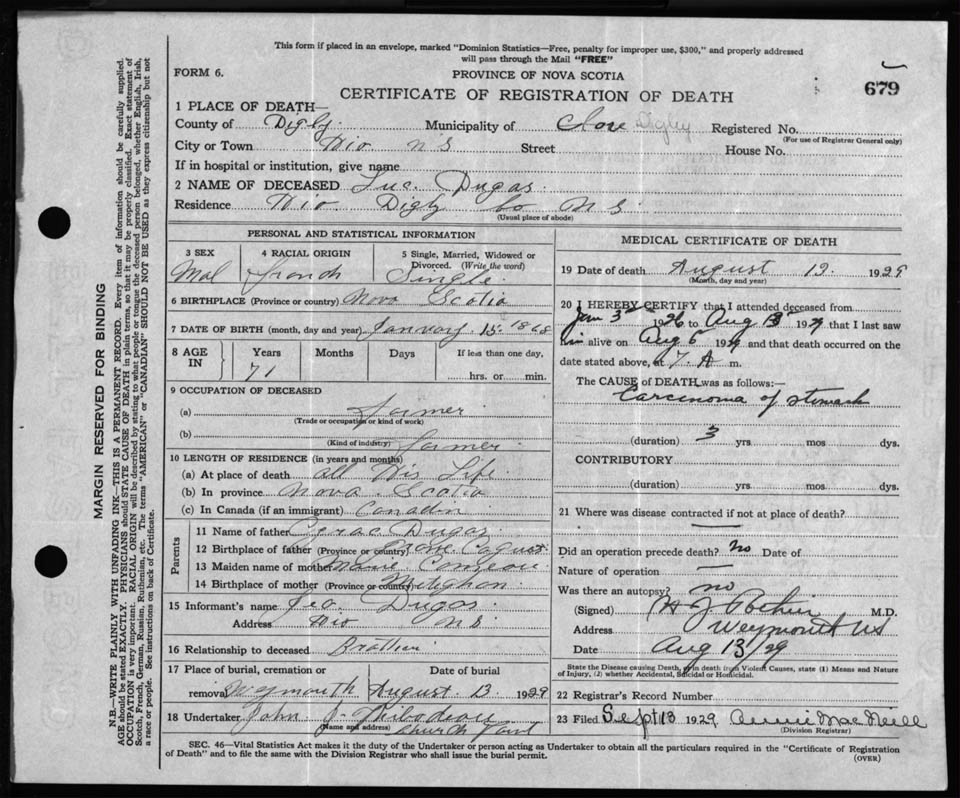 This form if placed in an envelope, marked "Dominion Statistics—Free, penalty for improper use, $300," and properly addressed
will pass through the Mail "FREE"
FORM 6.
PROVINCE OF NOVA SCOTIA
679
CERTIFICATE OF REGISTRATION OF DEATH
1 PLACE OF DEATH—
County of Digby Municipality of Clare Digby Registered No.
(For use of Registrar General only)
City or Town N S Street House No.
If in hospital or institution, give name
2 NAME OF DECEASED Luc. Dugas.
Residence Digby Co N S
(Usual place of abode)
PERSONAL AND STATISTICAL INFORMATION
3 SEX 4 RACIAL ORIGIN 5 Single, Married, Widowed or
Divorced. (Write the word)
Mal french Single
6 BIRTHPLACE (Province or country) Nova Scotia
7 DATE OF BIRTH (month, day and year) January 15 1868
8 AGE IN Years Months Days If less than one day,
71 hrs. or min.
9 OCCUPATION OF DECEASED
(a) farmer
(Trade or occupation or kind of work)
(b) farmer
(Kind of industry)
10 LENGTH OF RESIDENCE (in years and months)
(a) At place of death all His Life
(b) In province Nova Scotia
(c) In Canada (if an immigrant) Canadian
Parents
11 Name of father Dugas
12 Birthplace of father (Province or country)
13 Maiden name of mother Comeau
14 Birthplace of mother (Province or country) Meteghan
15 Informant's name Dugas
Address N S
16 Relationship to deceased Brother
17 Place of burial, cremation or Date of burial
removal Weymouth August 13 1929
18 Undertaker John J. Thibodeau
(Name and address) Church Point
MEDICAL CERTIFICATE OF DEATH
19 Date of death August 12. 1929
(Month, day and year)
20 I HEREBY CERTIFY that I attended deceased from
Jan 3rd 1926 to Aug 13 1929 that I last saw
him alive on Aug 6 1929 and that death occurred on the
date stated above, at 7. A m.
The CAUSE of DEATH was as follows:—
Carcinoma of stomach
(duration) 3 yrs. mos. dys.
CONTRIBUTORY
(duration) yrs. mos. dys.
21 Where was disease contracted if not at place of death?
Did an operation precede death? no Date of
Nature of operation —
Was there an autopsy? no
(Signed) M.D.
Address Weymouth NS
Date Aug 13/29
State the Disease causing Death, or in death from Violent Causes, state (1) Means and Nature
of Injury, (2) whether Accidental, Suicidal or Homicidal.
22 Registrar's Record Number
23 Filed Sept 13 1929. Annie MacNeill
(Division Registrar)
SEC. 46—Vital Statistics Act makes it the duty of the Undertaker or person acting as Undertaker to obtain all the particulars required in the "Certificate of Registration
of Death" and to file the same with the Division Registrar who shall issue the burial permit.
(OVER)
MARGIN RESERVED FOR BINDING
N.B.—WRITE PLAINLY WITH UNFADING INK—THIS IS A PERMANENT RECORD. Every item of information should be carefully supplied.
AGE should be stated EXACTLY. PHYSICIANS should STATE CAUSE OF DEATH in plain terms, so that it may be properly classified. Exact statement of
OCCUPATION is very important. RACIAL ORIGIN will be described by stating to what people or tongue the deceased person belonged, whether English, Irish,
Scotch, French, German, Russian, Ruthenian, etc. The terms "AMERICAN" or "CANADIAN" SHOULD NOT BE USED as they express citizenship but not
a race or people. See instructions on back of Certificate.